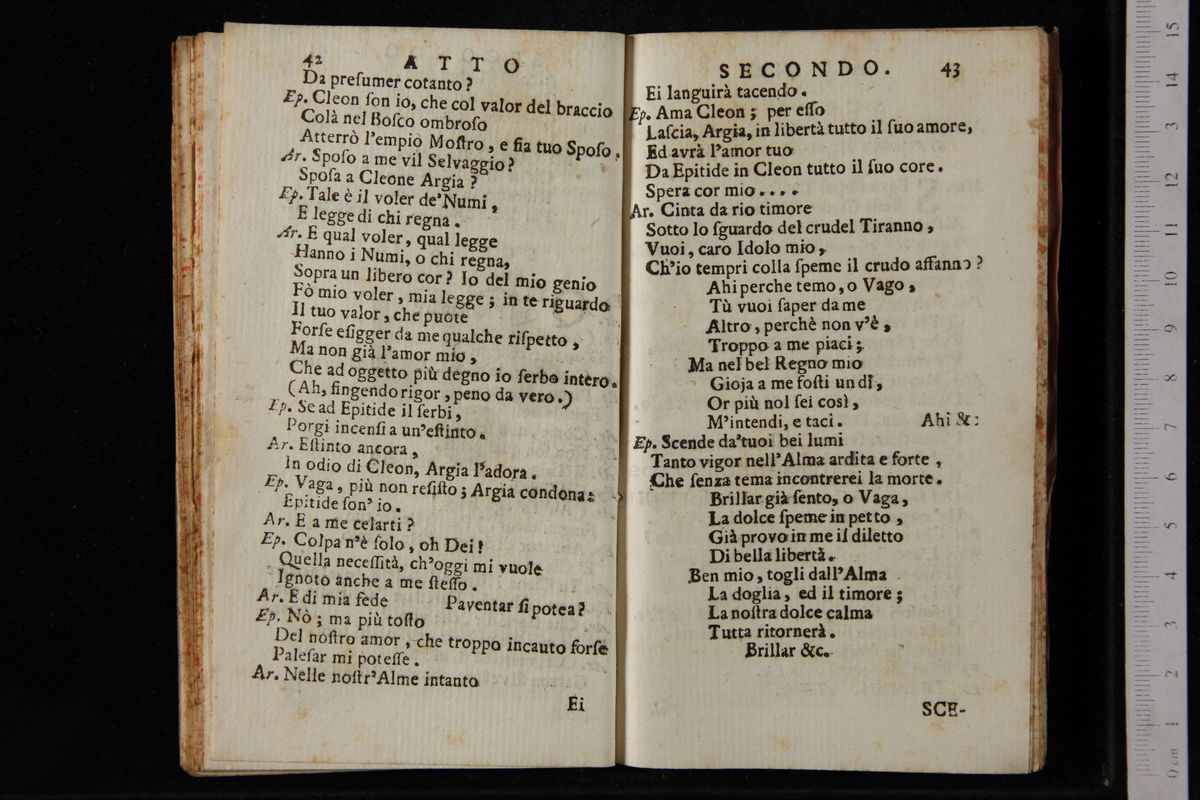 42 ATTO
Da preſumer cotanto?
Ep. Cleon ſon io, che col valor del braccio
Colà nel Boſco ombroſo
Atterrò l'empio Moſtro, e fia tuo Spoſo.
Ar. Spoſo a me vil Selvaggio?
Spoſa a Cleone Argia?
Ep. Tale è il voler de' Numi,
E legge di chi regna.
Ar. E qual voler, qual legge
Hanno i Numi, o chi regna,
Sopra un libero cor? Io del mio genio
Fò mio voler, mia legge; in te riguardo
Il tuo valor, che puote
Forſe eſigger da me qualche riſpetto,
Ma non già l'amor mio,
Che ad oggetto più degno io ſerbo intero.
(Ah, fingendo rigor, peno da vero.)
Ep. Se ad Epitide il ſerbi,
Porgi incenſi a un'eſtinto.
Ar. Eſtinto ancora,
In odio di Cleon, Argia l'adora.
Ep. Vaga, più non reſiſto; Argia condona:
Epitide ſon' io.
Ar. E a me celarti?
Ep. Colpa n'è ſolo, oh Dei!
Quella neceſſità, ch'oggi mi vuole
Ignoto anche a me ſteſſo.
Ar. E di mia fede Paventar ſi potea?
Ep. Nò; ma più toſto
Del noſtro amor, che troppo incauto forſe
Paleſar mi poteſſe.
Ar. Nelle noſtr'Alme intanto
Ei
SECONDO. 43
Ei languirà tacendo.
Ep. Ama Cleon; per eſſo
Laſcia, Argia, in libertà tutto il ſuo amore,
Ed avrà l'amor tuo
Da Epitide in Cleon tutto il ſuo core.
Spera cor mio....
Ar. Cinta da rio timore
Sotto lo ſguardo del crudel Tiranno,
Vuoi, caro Idolo mio,
Ch'io tempri colla ſpeme il crudo affanno?
Ahi perche temo, o Vago,
Tù vuoi ſaper da me
Altro, perchè non v'è,
Troppo a me piaci;
Ma nel bel Regno mio
Gioja a me foſti un dì,
Or più nol ſei così,
M'intendi, e taci. Ahi &:
Ep. Scende da'tuoi bei lumi
Tanto vigor nell'Alma ardita e forte,
Che ſenza tema incontrerei la morte.
Brillar già ſento, o Vaga,
La dolce ſpeme in petto,
Già provo in me il diletto
Di bella libertà.
Ben mio, togli dall'Alma
La doglia, ed il timore;
La noſtra dolce calma
Tutta ritornerà.
Brillar &c.
SCE-
1 2 3 4 5 6 7 8 9 10 11 12 13 14 15
0 cm